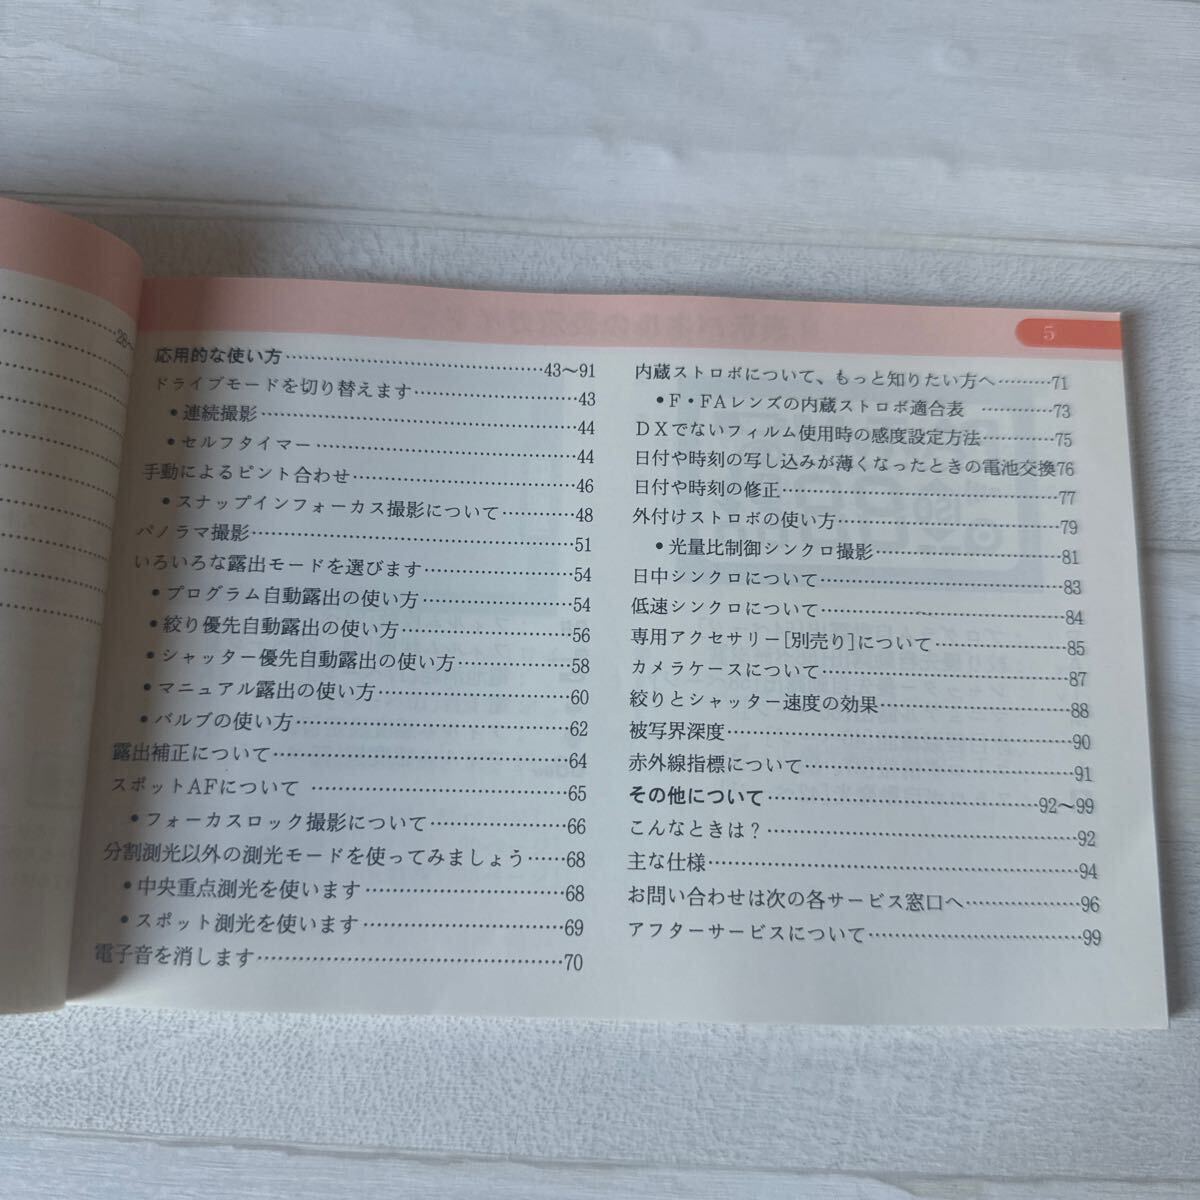 26〜
5
応用的な使い方……………………………43〜91
ドライブモードを切り替えます……………………43
●連続撮影……………………………………44
●セルフタイマー………………………………44
手動によるピント合わせ…………………………46
●スナップインフォーカス撮影について………48
パノラマ撮影………………………………………51
いろいろな露出モードを選びます…………………54
●プログラム自動露出の使い方………………54
●絞り優先自動露出の使い方…………………56
●シャッター優先自動露出の使い方…………58
●マニュアル露出の使い方……………………60
●バルブの使い方………………………………62
露出補正について…………………………………64
スポットAFについて ……………………………65
●フォーカスロック撮影について……………66
分割測光以外の測光モードを使ってみましょう……68
●中央重点測光を使います……………………68
●スポット測光を使います……………………69
電子音を消します…………………………………70
内蔵ストロボについて、もっと知りたい方へ………71
●F・FAレンズの内蔵ストロボ適合表 …………73
DXでないフィルム使用時の感度設定方法…………75
日付や時刻の写し込みが薄くなったときの電池交換76
日付や時刻の修正…………………………………77
外付けストロボの使い方…………………………79
●光量比制御シンクロ撮影……………………81
日中シンクロについて……………………………83
低速シンクロについて……………………………84
専用アクセサリー[別売り]について………………85
カメラケースについて……………………………87
絞りとシャッター速度の効果……………………88
被写界深度…………………………………………90
赤外線指標について………………………………91
その他について………………………………92〜99
こんなときは?……………………………………92
主な仕様……………………………………………94
お問い合わせは次の各サービス窓口へ……………96
アフターサービスについて………………………99